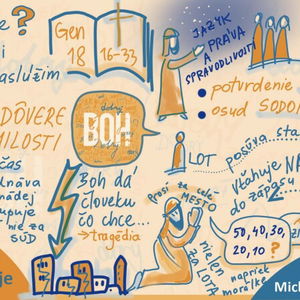 e?
i
Gen
18
16-33
JAZYK
A PRÁVA
SPRAVODLIVOSTI
• potvrdenie
• osud SODO
aslúžim
DÔVERE
MILOSTI
dobrý
BOH
LOT
posúva sta
čas
dnáva
nádej
upuje
nie za
SÚD
Boh dá
človeku
čo chce....
→ tragédia
Prosí za celé
MESTO
nielen
za LOTA
napriek
Vťahuje NÁ
do zápasu
50,40,30,
20,10 ?
je
Mich